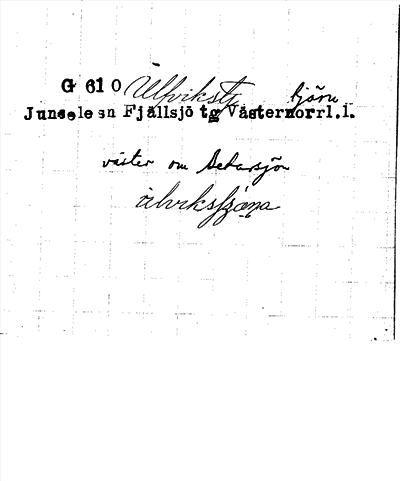 G 610 Ulvikstj tjärn
Junsele sn Fjällsjö tg Västernorrl.l.
väster om Betarsjön
ulvikstjɔ̈ṇa